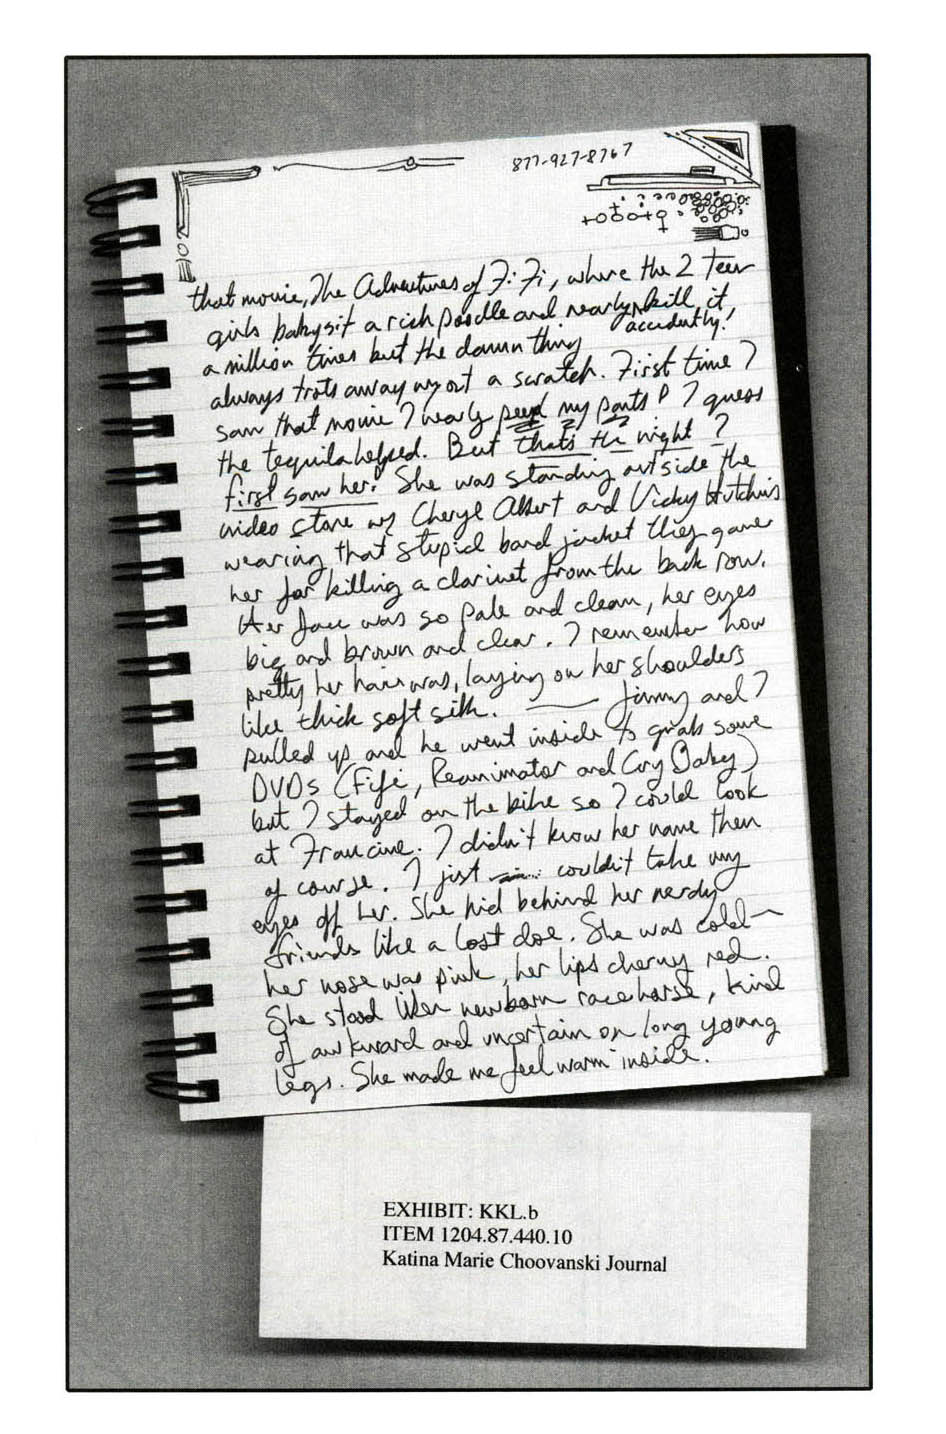 877-927-8767
that movie, The Adventures of Fi Fi, where the 2 teen
girls babysit a rich poodle and nearly kill it
accidently!
a million times but the damn thing
always trots away w/out a scratch. First time I
saw that movie I nearly peed my pants! I guess
the tequila helped. But thats the night I
first saw her! She was standing outside the
video store w/ Cheryl Albert and Vicky Hutchins
wearing that stupid band jacket they gave
her for killing a clarinet from the back row.
Her face was so pale and clean, her eyes
big and brown and clear. I remember how
pretty her hair was, laying on her shoulders
like thick soft silk. —— Jimmy and I
pulled up and he went inside to grab some
DVDs (Fifi, Reanimator and Cry Baby)
but I stayed on the bike so I could look
at Francine. I didn't know her name then
of course. I just couldn't take my
eyes off her. She hid behind her nerdy
friends like a lost doe. She was cold—
her nose was pink, her lips cherry red.
She stood like a newborn racehorse, kind
of awkward and uncertain on long young
legs. She made me feel warm inside.
EXHIBIT: KKL.b
ITEM 1204.87.440.10
Katina Marie Choovanski Journal